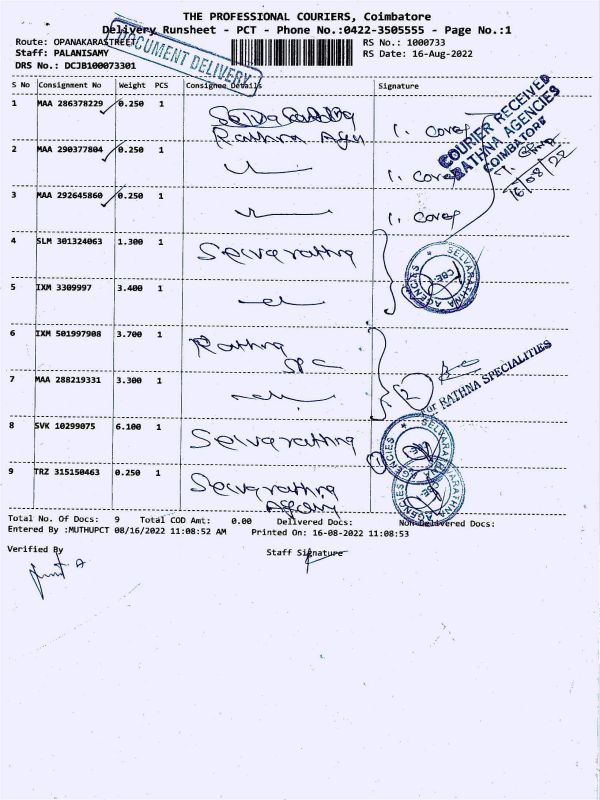 THE PROFESSIONAL COURIERS, Coimbatore
Delivery Runsheet - PCT - Phone No.:0422-3505555 - Page No.:1
Route: OPANAKARASTREET
RS No.: 1000733
Staff: PALANISAMY
RS Date: 16-Aug-2022
DRS No.: DCJB100073301
DOCUMENT DELIVERY
S No Consignment No Weight PCS Consignee Details Signature
1 MAA 286378229 0.250 1 Selvarathna
Rathna Agen 1. cover
COURIER RECEIVED
RATHNA AGENCIES
COIMBATORE
16/08/22
2 MAA 290377804 0.250 1 1. cover
3 MAA 292645860 0.250 1 1. cover
4 SLM 301324063 1.300 1 Selvarathna
SELVARATHNA AGENCIES CBE
5 IXM 3309997 3.400 1
6 IXM 501997908 3.700 1 Rathna
spc
7 MAA 288219331 3.300 1 2
For RATHNA SPECIALITIES
8 SVK 10299075 6.100 1 Selvarathna 1
SELVARATHNA AGENCIES
9 TRZ 315150463 0.250 1 Selvarathna
Agency
SELVARATHNA AGENCIES CBE
Total No. Of Docs: 9 Total COD Amt: 0.00 Delivered Docs: Non-Delivered Docs:
Entered By :MUTHUPCT 08/16/2022 11:08:52 AM Printed On: 16-08-2022 11:08:53
Verified By Staff Signature